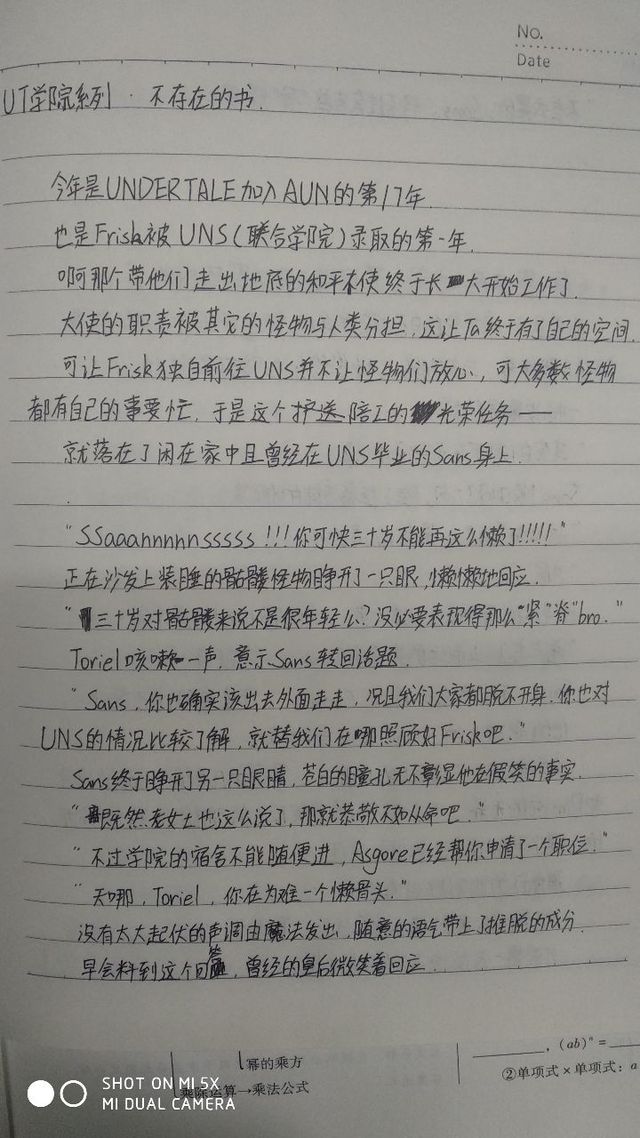 No.
Date
UT学院系列·不存在的书.
今年是UNDERTALE加入AUN的第17年
也是Frisk被UNS(联合学院)录取的第一年.
啊那个带他们走出地底的和平大使终于长大开始工作了.
大使的职责被其它的怪物与人类分担,这让Ta终于有了自己的空间.
可让Frisk独自前往UNS并不让怪物们放心,可大多数怪物
都有自己的事要忙,于是这个护送陪工的光荣任务——
就落在了闲在家中且曾经在UNS毕业的Sans身上.
"SSaaannnnnsssss!!!你可快三十岁不能再这么懒了!!!!!"
正在沙发上装睡的骷髅怪物睁开了一只眼,懒懒地回应.
"三十岁对骷髅来说不是很年轻么?没必要表现得那么"紧"脊"bro."
Toriel咳嗽一声,意示Sans转回话题.
"Sans,你也确实该出去外面走走,况且我们大家都脱不开身,你也对
UNS的情况比较了解,就替我们在哪照顾好Frisk吧."
Sans终于睁开了另一只眼睛,苍白的瞳孔无不彰显他在假笑的事实.
"既然老女士也这么说了,那就恭敬不如从命吧."
"不过学院的宿舍不能随便进,Asgore已经帮你申请了一个职位."
"天哪,Toriel,你在为难一个懒骨头."
没有太大起伏的声调由魔法发出,随意的语气带上了推脱的成分.
早会料到这个回答,曾经的皇后微笑着回应.
幂的乘方
乘除运算→乘法公式
,(ab)ⁿ=
②单项式×单项式:a
SHOT ON MI 5X
MI DUAL CAMERA